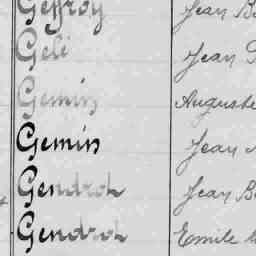 Geffroy Jean
Geli Jean
Gemin Auguste
Gemin Jean
Gendrot Jean
Gendrot Emile